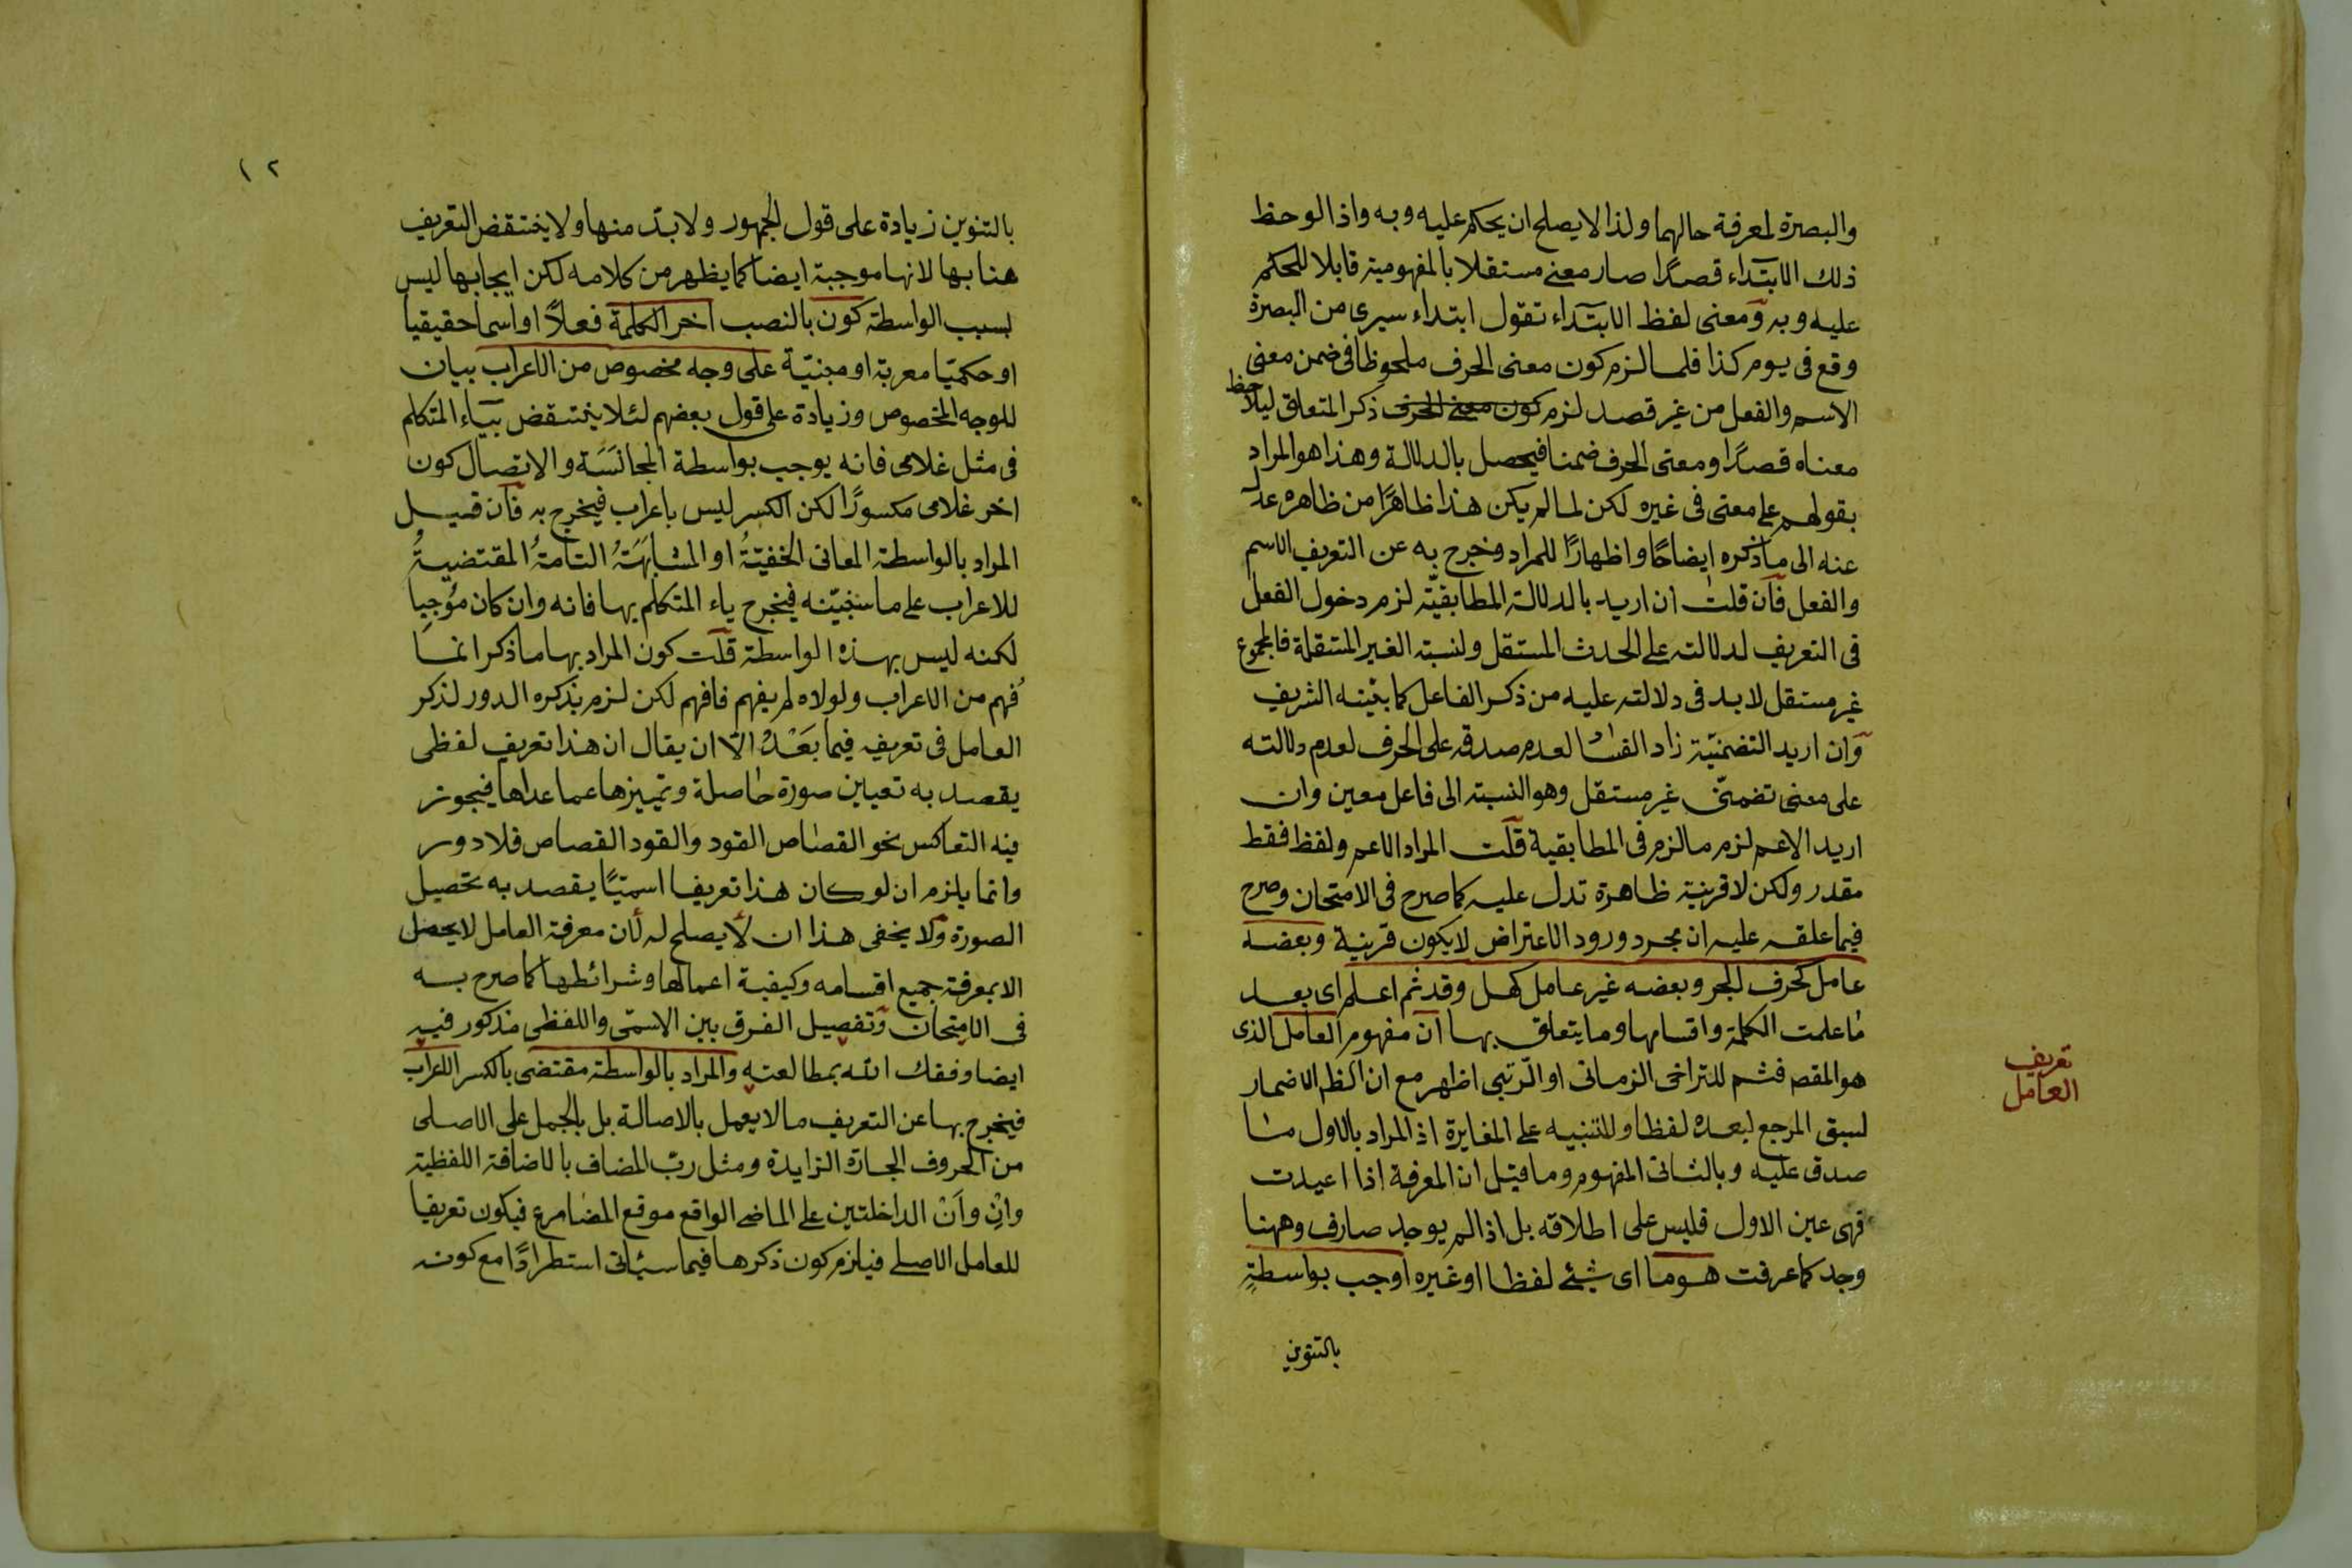 والبصرة لمعرفة حالهما ولذا لا يصلح ان يحكم عليه وبه واذا لوحظ
ذلك الابتداء قصدًا صار معنى مستقلا بالمفهومية قابلا للحكم
عليه وبه ومعنى لفظ الابتداء تقول ابتداء سيرى من البصرة
وقع فى يوم كذا فلما لزم كون معنى الحرف ملحوظا فى ضمن معنى
الاسم والفعل من غير قصد لزم كون معنى الحرف ذكر المتعلق ليلاحظ
معناه قصدًا ومعنى الحرف ضمنا فيحصل بالدلالة وهذا هو المراد
بقولهم على معنى فى غيره لكن لما لم يكن هذا ظاهرًا من ظاهره عدل
عنه الى ما ذكره ايضاحًا واظهارًا للمراد وخرج به عن التعريف الاسم
والفعل فان قلت ان اريد بالدلالة المطابقيّة لزم دخول الفعل
فى التعريف لدلالته على الحدث المستقل ولنسبته الغير المستقلة فالمجموع
غير مستقل لا بد فى دلالته عليه من ذكر الفاعل كما بيّنه الشريف
وان اريد التضمنيّة زاد الفساد لعدم صدقه على الحرف لعدم دلالته
على معنى تضمنّى غير مستقل وهو النسبته الى فاعل معين وان
اريد الاعم لزم ما لزم فى المطابقية قلت المراد الاعم ولفظ فقط
مقدر ولكن لا قرينة ظاهرة تدل عليه كما صرح فى الامتحان وصرح
فيما علقه عليه ان مجرد ورود الاعتراض لا يكون قرينة وبعضه
عامل كحرف الجر وبعضه غير عامل كهل وقد ثم اعلم اى بعد
ما علمت الكلمة واقسامها وما يتعلق بها ان مفهوم العامل الذى
هو المقصم فثم للتراخى الزمانى او الرّتبى اظهر مع ان الظم الاضمار
لسبق المرجع لبعده لفظا وللتنبيه على المغايرة اذ المراد بالاول ما
صدق عليه وبالثانى المفهوم وما قيل ان المعرفة اذا اعيدت
فهى عين الاول فليس على اطلاقه بل اذا لم يوجد صارف وههنا
وجد كما عرفت هو ما اى شىء لفظا او غيره اوجب بواسطةٍ
بالتنوين
تعريف
العامل
١٢
بالتنوين زيادة على قول الجمهور ولا بدّ منها ولا ينتقض التعريف
هنا بها لانها موجبة ايضا كما يظهر من كلامه لكن ايجابها ليس
بسبب الواسطة كون بالنصب اخر الكلمة فعلاً او اسما حقيقيا
او حكميّا معربة او مبنيّة على وجه مخصوص من الاعراب بيان
للوجه المخصوص وزيادة على قول بعضهم لئلا ينتقض بياء المتكلم
فى مثل غلامى فانه يوجب بواسطة المجانَسَة والاتصال كون
اخر غلامى مكسورًا لكن الكسر ليس باعراب فيخرج به فان قيل
المراد بالواسطة المعانى الخفيّةُ او المشابَهَتُه التامةُ المقتضيةُ
للاعراب على ما سنبيّنه فيخرج ياء المتكلم بها فانه وان كان مُوجِبا
لكنه ليس بهذه الواسطة قلت كون المراد بها ما ذكر انما
فُهم من الاعراب ولولاه لم يفهم فافهم لكن لزم بذكره الدور لذكر
العامل فى تعريفه فيما بَعْدُ الّا ان يقال ان هذا تعريف لفظى
يقصد به تعيين صورة حاصلة وتمييزها عما عداها فيجوز
فيه التعاكس نحو القصاص القود والقود القصاص فلا دور
وانما يلزم ان لو كان هذا تعريفا اسميًّا يقصد به تحصيل
الصورة ولا يخفى هذا ان لا يصلح له لان معرفة العامل لا يحصل
الا بمعرفة جميع اقسامه وكيفية اعمالها وشرائطها كما صرح به
فى الامتحان وتفصيل الفرق بين الاسمّى واللفظى مذكور فيه
ايضا وفقك الله بمطالعته والمراد بالواسطة مقتضى بالكسر الاعراب
فيخرج بها عن التعريف ما لا يعمل بالاصالة بل بالحمل على الاصلى
من الحروف الجارّة الزايدة ومثل ربّ المضاف بالاضافة اللفظية
وانِْ واَنْ الداخلتين على الماضى الواقع موقع المضارع فيكون تعريفا
للعامل الاصلى فيلزم كون ذكرها فيما سيأتى استطرادًا مع كونه